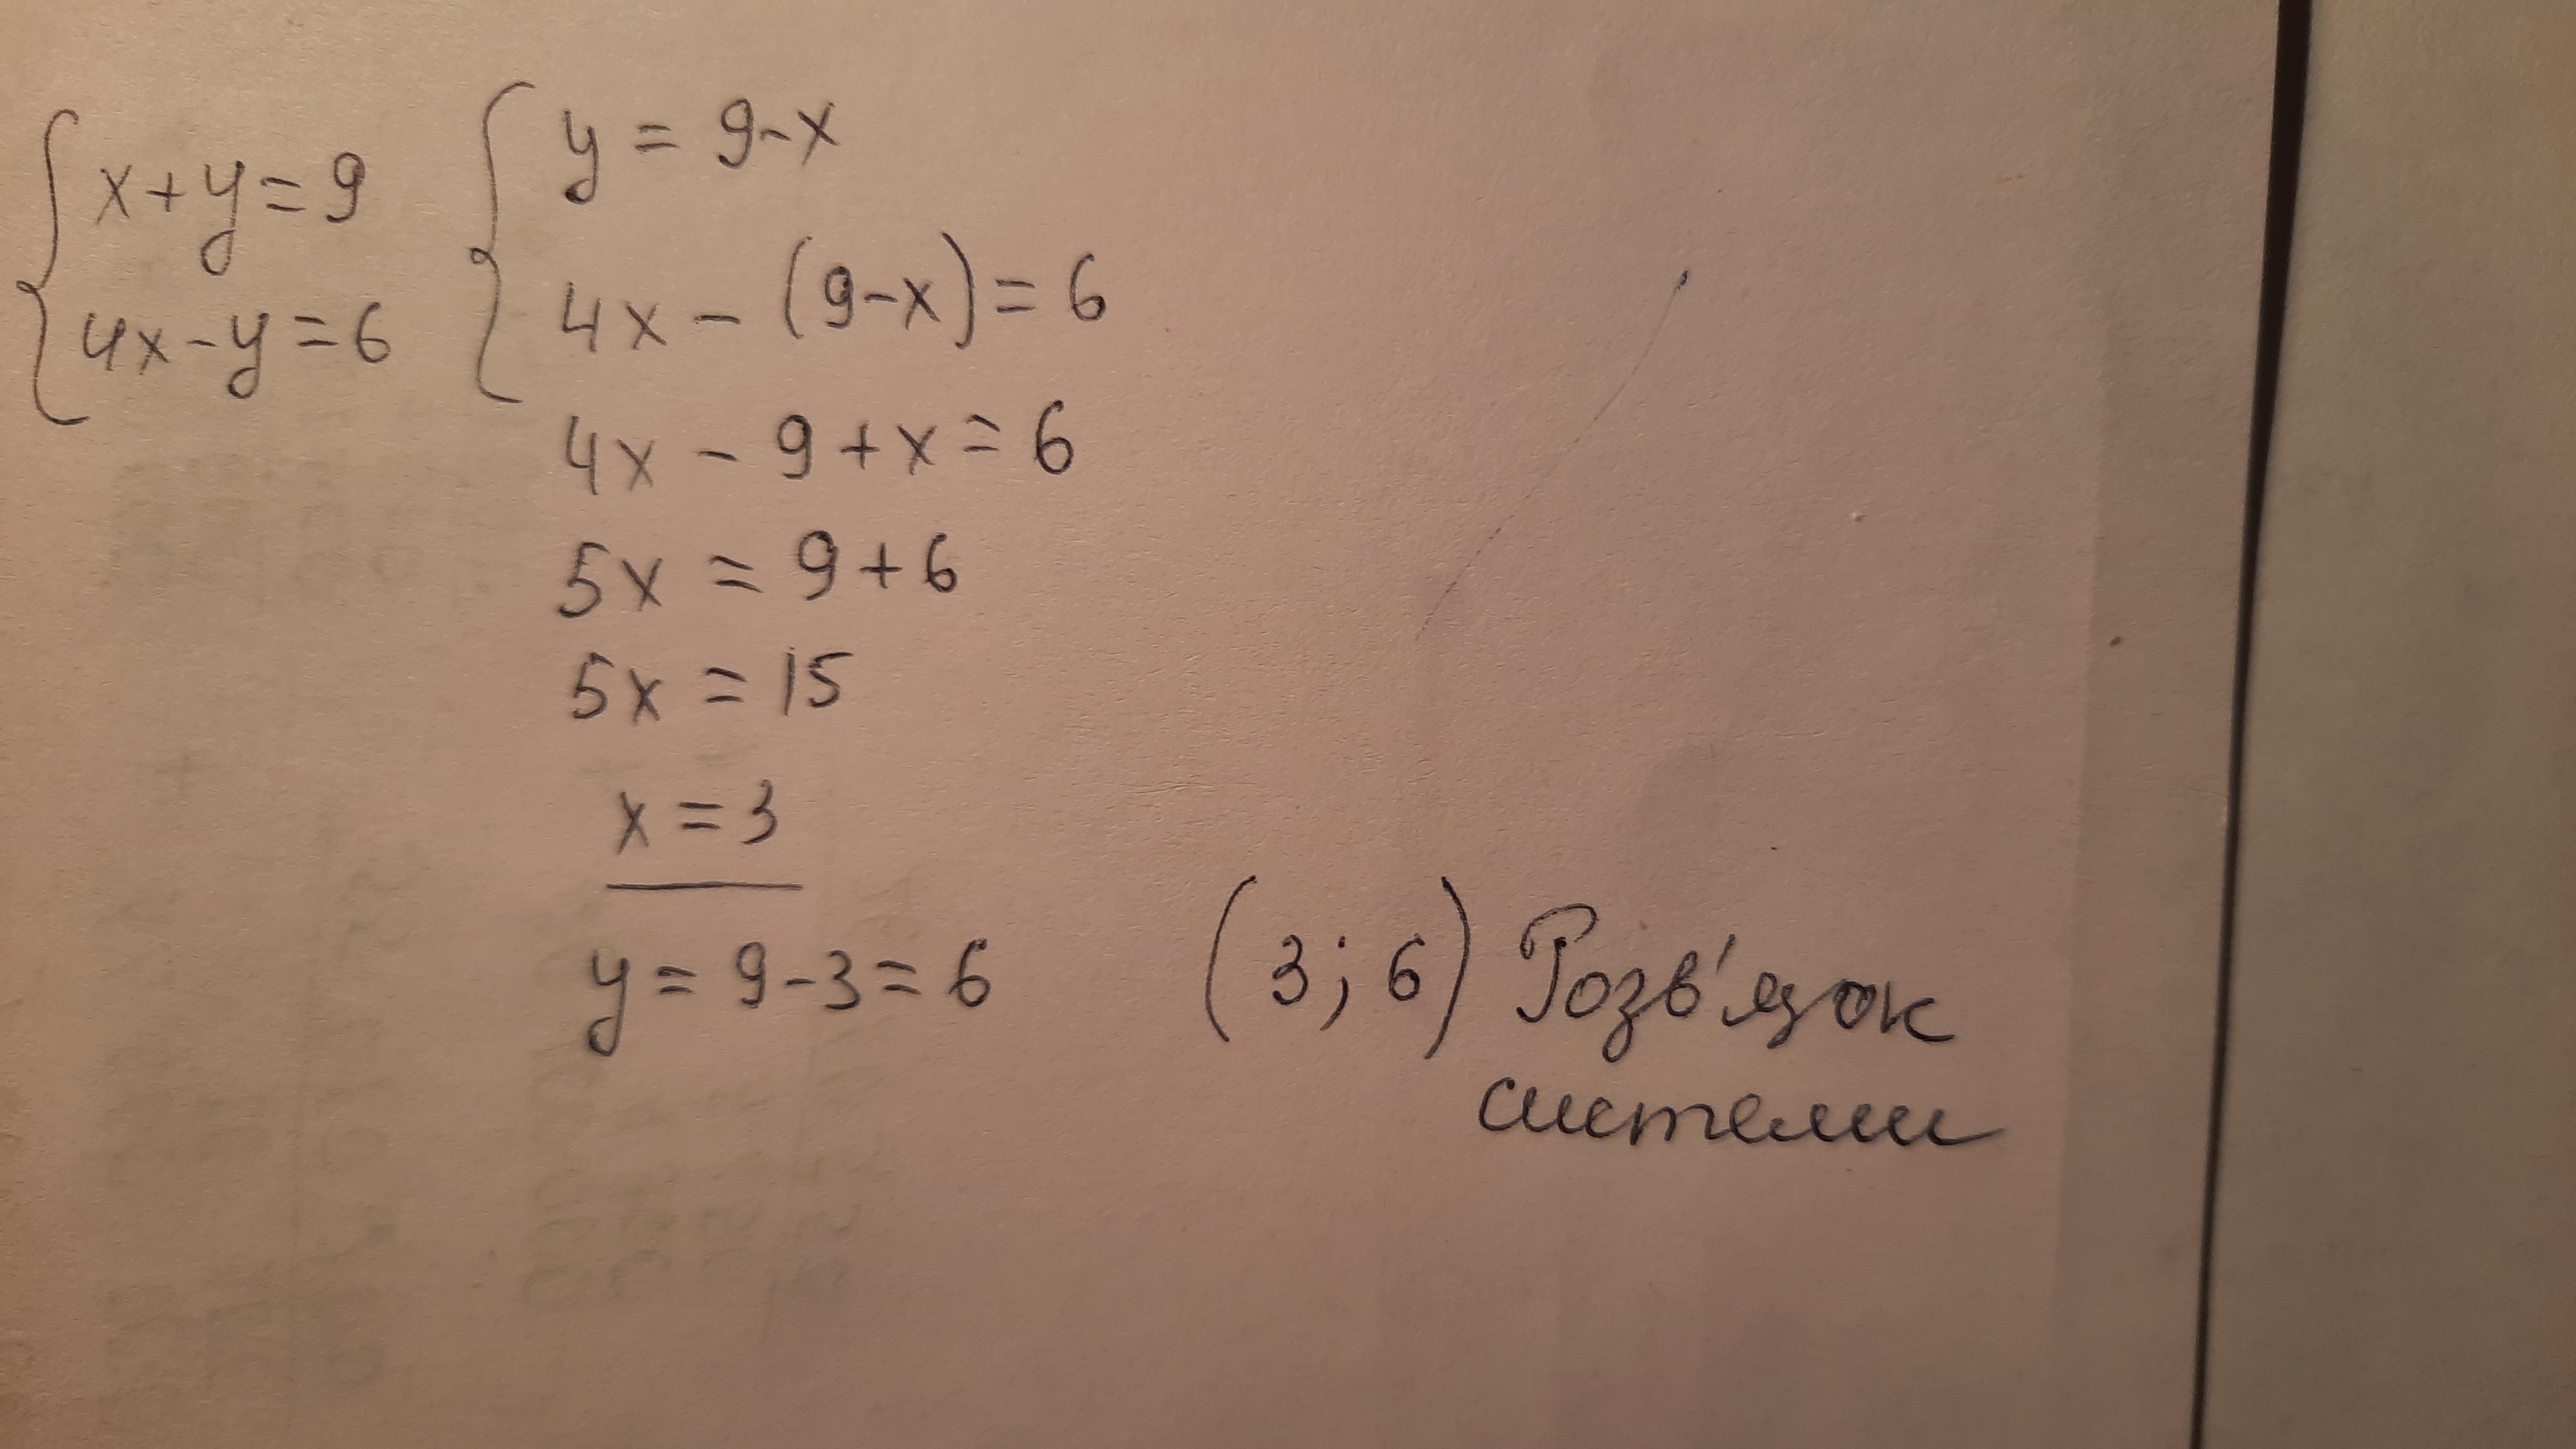 x+y=9
4x-y=6
y = 9-x
4x - (9-x) = 6
4x - 9 + x = 6
5x = 9+6
5x = 15
x = 3
y = 9-3 = 6
(3; 6) Розв'язок
системи